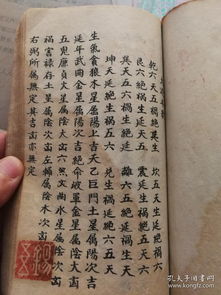 乾六天五禍絶延生　坎五天生延絶禍六
艮六絶禍生延天五　震延生禍絶五天六
巽天五六禍生絶延　離六五絶延禍生天
坤天延絶生禍五六　兌生禍延絶六五天
生氣貪狼木星屬陽上吉天乙巨門土星屬陽次吉
延年武曲金星屬陽次吉絶命破軍金星屬陰大凶
五鬼廉貞火星屬陰大凶六煞文曲水星屬陰次凶
禍害祿存土星屬陰次凶左輔屬陰木次凶
右弼所屬無定其吉凶亦無定
孔夫子旧书网